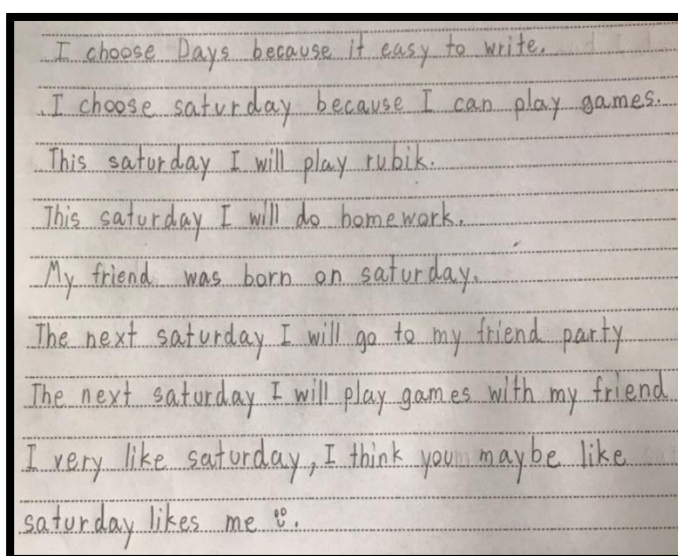 I choose Days because it easy to write.
I choose saturday because I can play games.
This saturday I will play rubik.
This saturday I will do homework.
My friend was born on saturday.
The next saturday I will go to my friend party
The next saturday I will play games with my friend
I very like saturday, I think you maybe like
saturday likes me